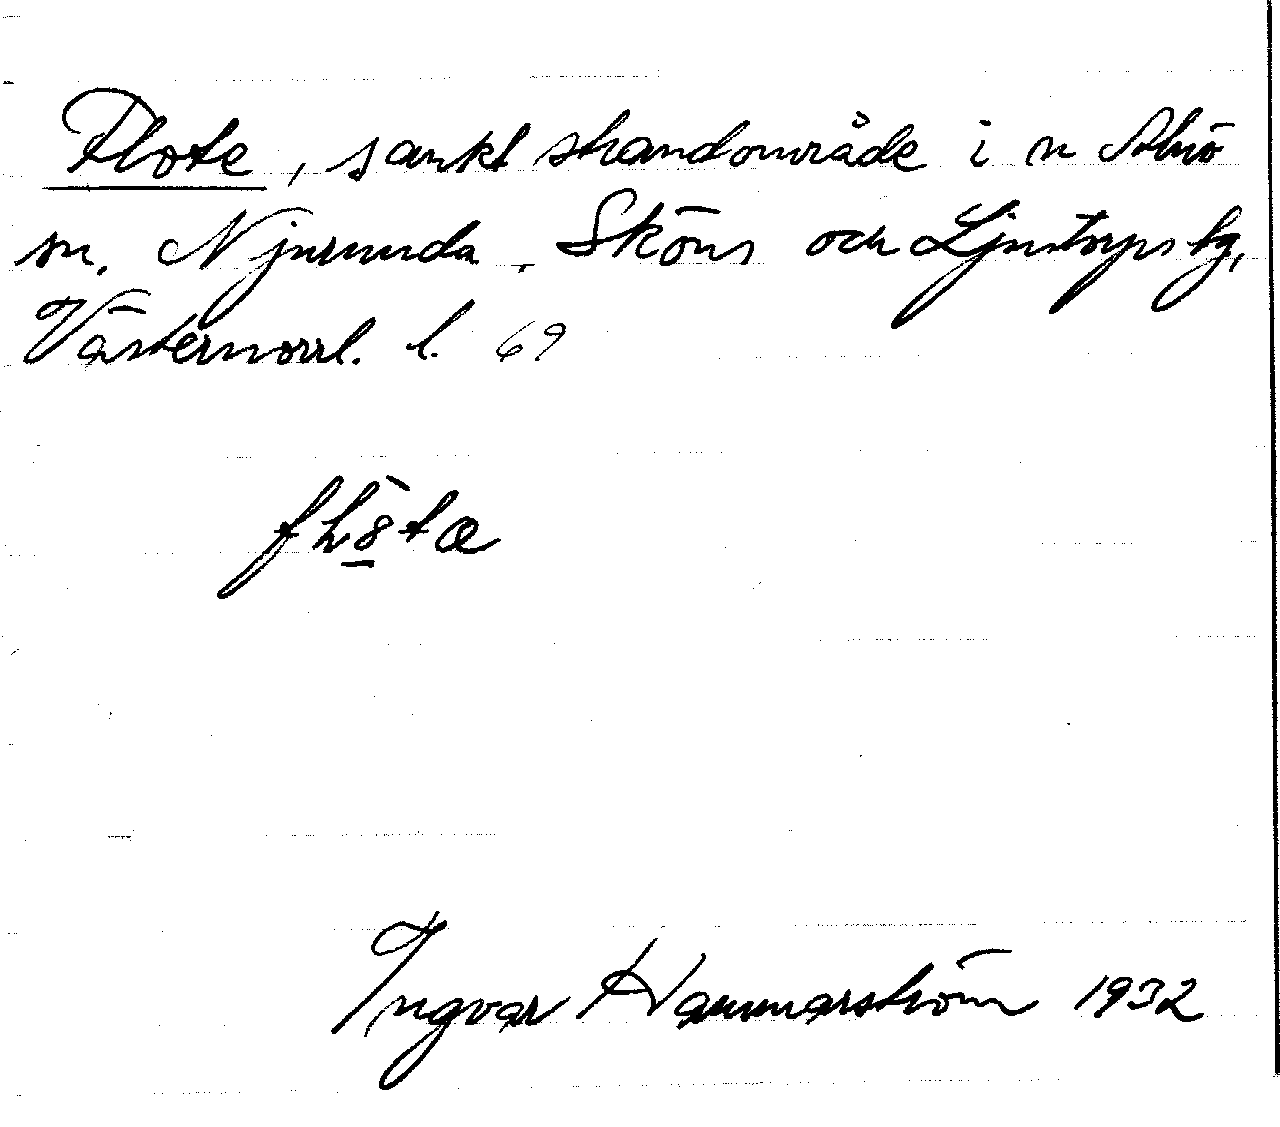 Flote, sankt strandområde i n Alnö
sn. Njurunda, Sköns och Ljustorps tg,
Västernorrl. l. 69
Ingvar Hammarström 1932